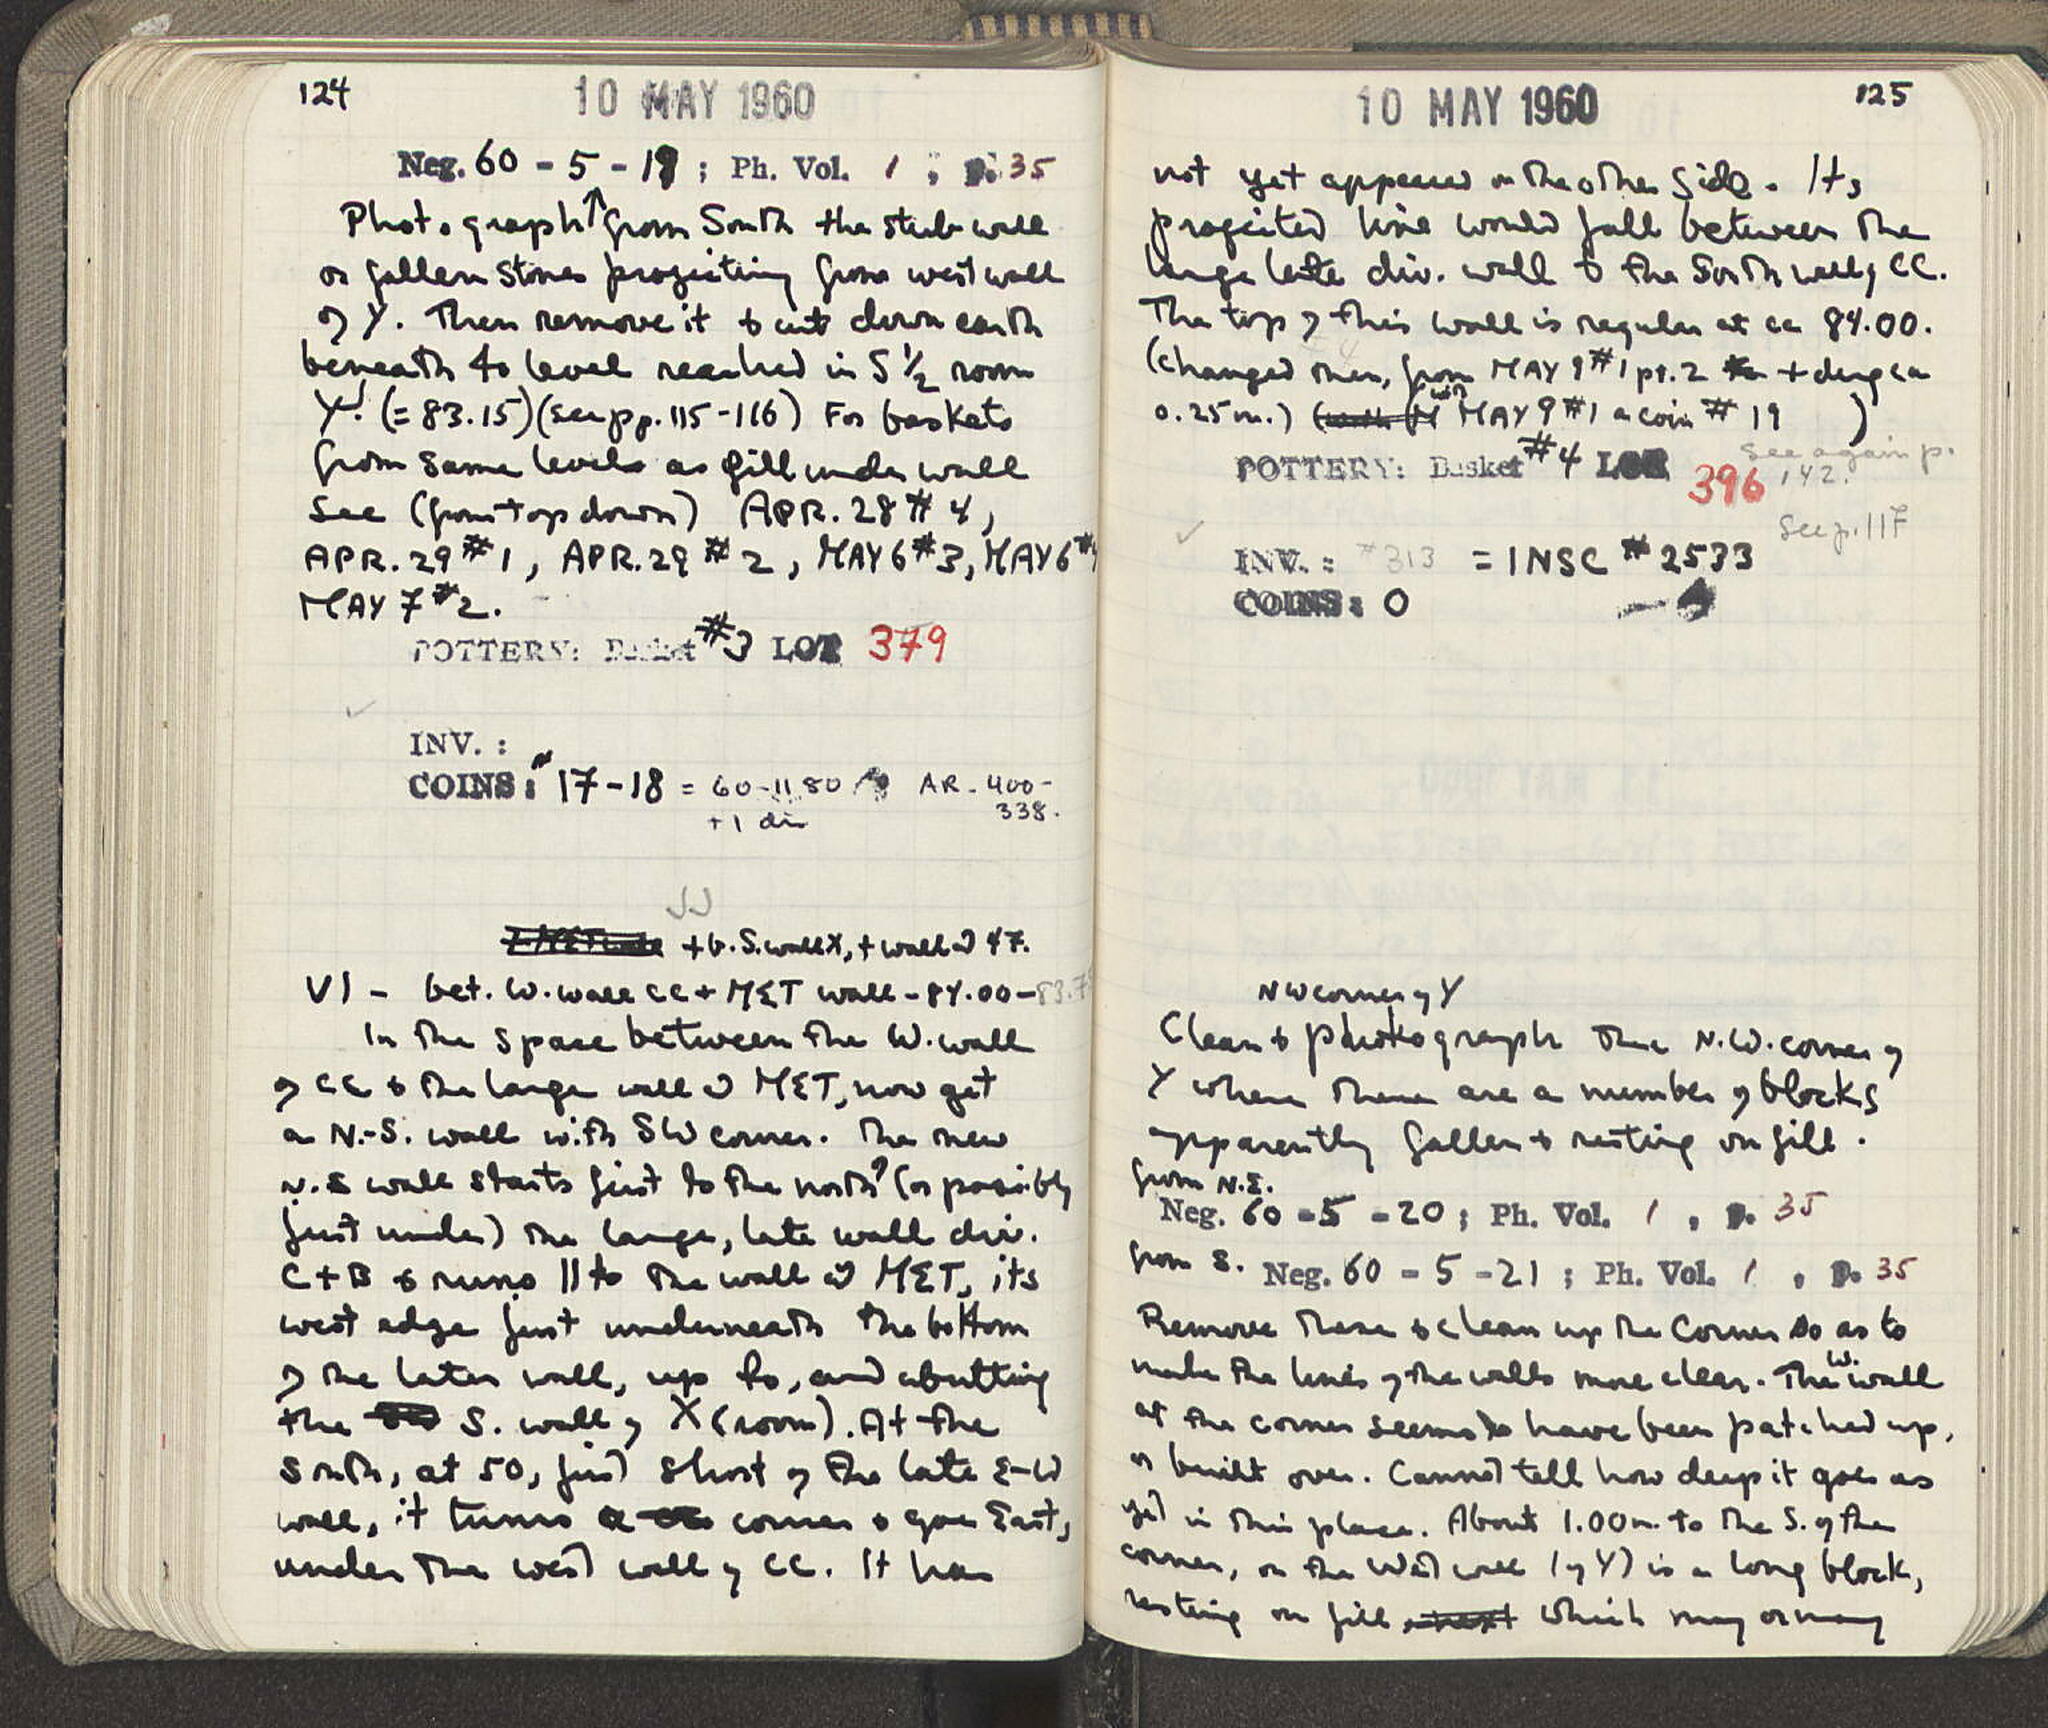 124
10 MAY 1960
Neg. 60 - 5 - 19 ; Ph. Vol. 1 , p. 35
Photograph ↑ from South the stub wall
or fallen stones projecting from west wall
of Y. Then remove it & cut down earth
beneath to level reached in S 1/2 room
Y. (= 83.15) (see pp. 115-116) For baskets
from same levels as fill under wall
see (from top down) APR. 28 # 4,
APR. 29 # 1, APR. 29 # 2, MAY 6 # 3, MAY 6 #4
MAY 7 # 2.
POTTERY: Basket #3 LOT 379
INV. :
COINS: # 17-18 = 60-1180 AR. 400-
338.
+ 1 dis
JJ
+ b. S. wall X, + wall @ 47.
VI - bet. W. wall CC + MET wall - 84.00 - 83.7
In the space between the W. wall
of CC & the large wall @ MET, now get
a N.-S. wall with SW corner. The new
N.S wall starts just to the north? (or possibly
just under) the large, late wall div.
C + B & runs || to the wall @ MET, its
west edge just underneath the bottom
of the later wall, up to, and abutting
the S. wall of X (room). At the
South, at 50, just short of the late E-W
wall, it turns a corner & goes East,
under the west wall of CC. It has
10 MAY 1960
125
not yet appeared on the other side. Its
projected line would fall between the
large late div. wall & the South wall of CC.
The top of this wall is regular at ca 84.00.
(changed then, from MAY 9 #1 pt. 2 + deng ca
0.25m.) (with MAY 9 #1 a coin # 19 )
POTTERY: Basket #4 LOT 396
see again p.
142.
See p. 117
INV. : #313 = INSC # 2533
COINS: 0
NW corner of Y
Clean & photograph the N.W. corner of
Y where there are a number of blocks
apparently fallen & resting on fill.
from N.E.
Neg. 60 - 5 - 20 ; Ph. Vol. 1 , p. 35
from S. Neg. 60 - 5 - 21 ; Ph. Vol. 1 , p. 35
Remove these & clean up the corner so as to
make the lines of the walls more clear. The W. wall
at the corner seems to have been patched up,
or built over. Cannot tell how deep it goes as
yet in this place. About 1.00m. to the S. of the
corner, on the West wall (of Y) is a long block,
resting on fill which may or may